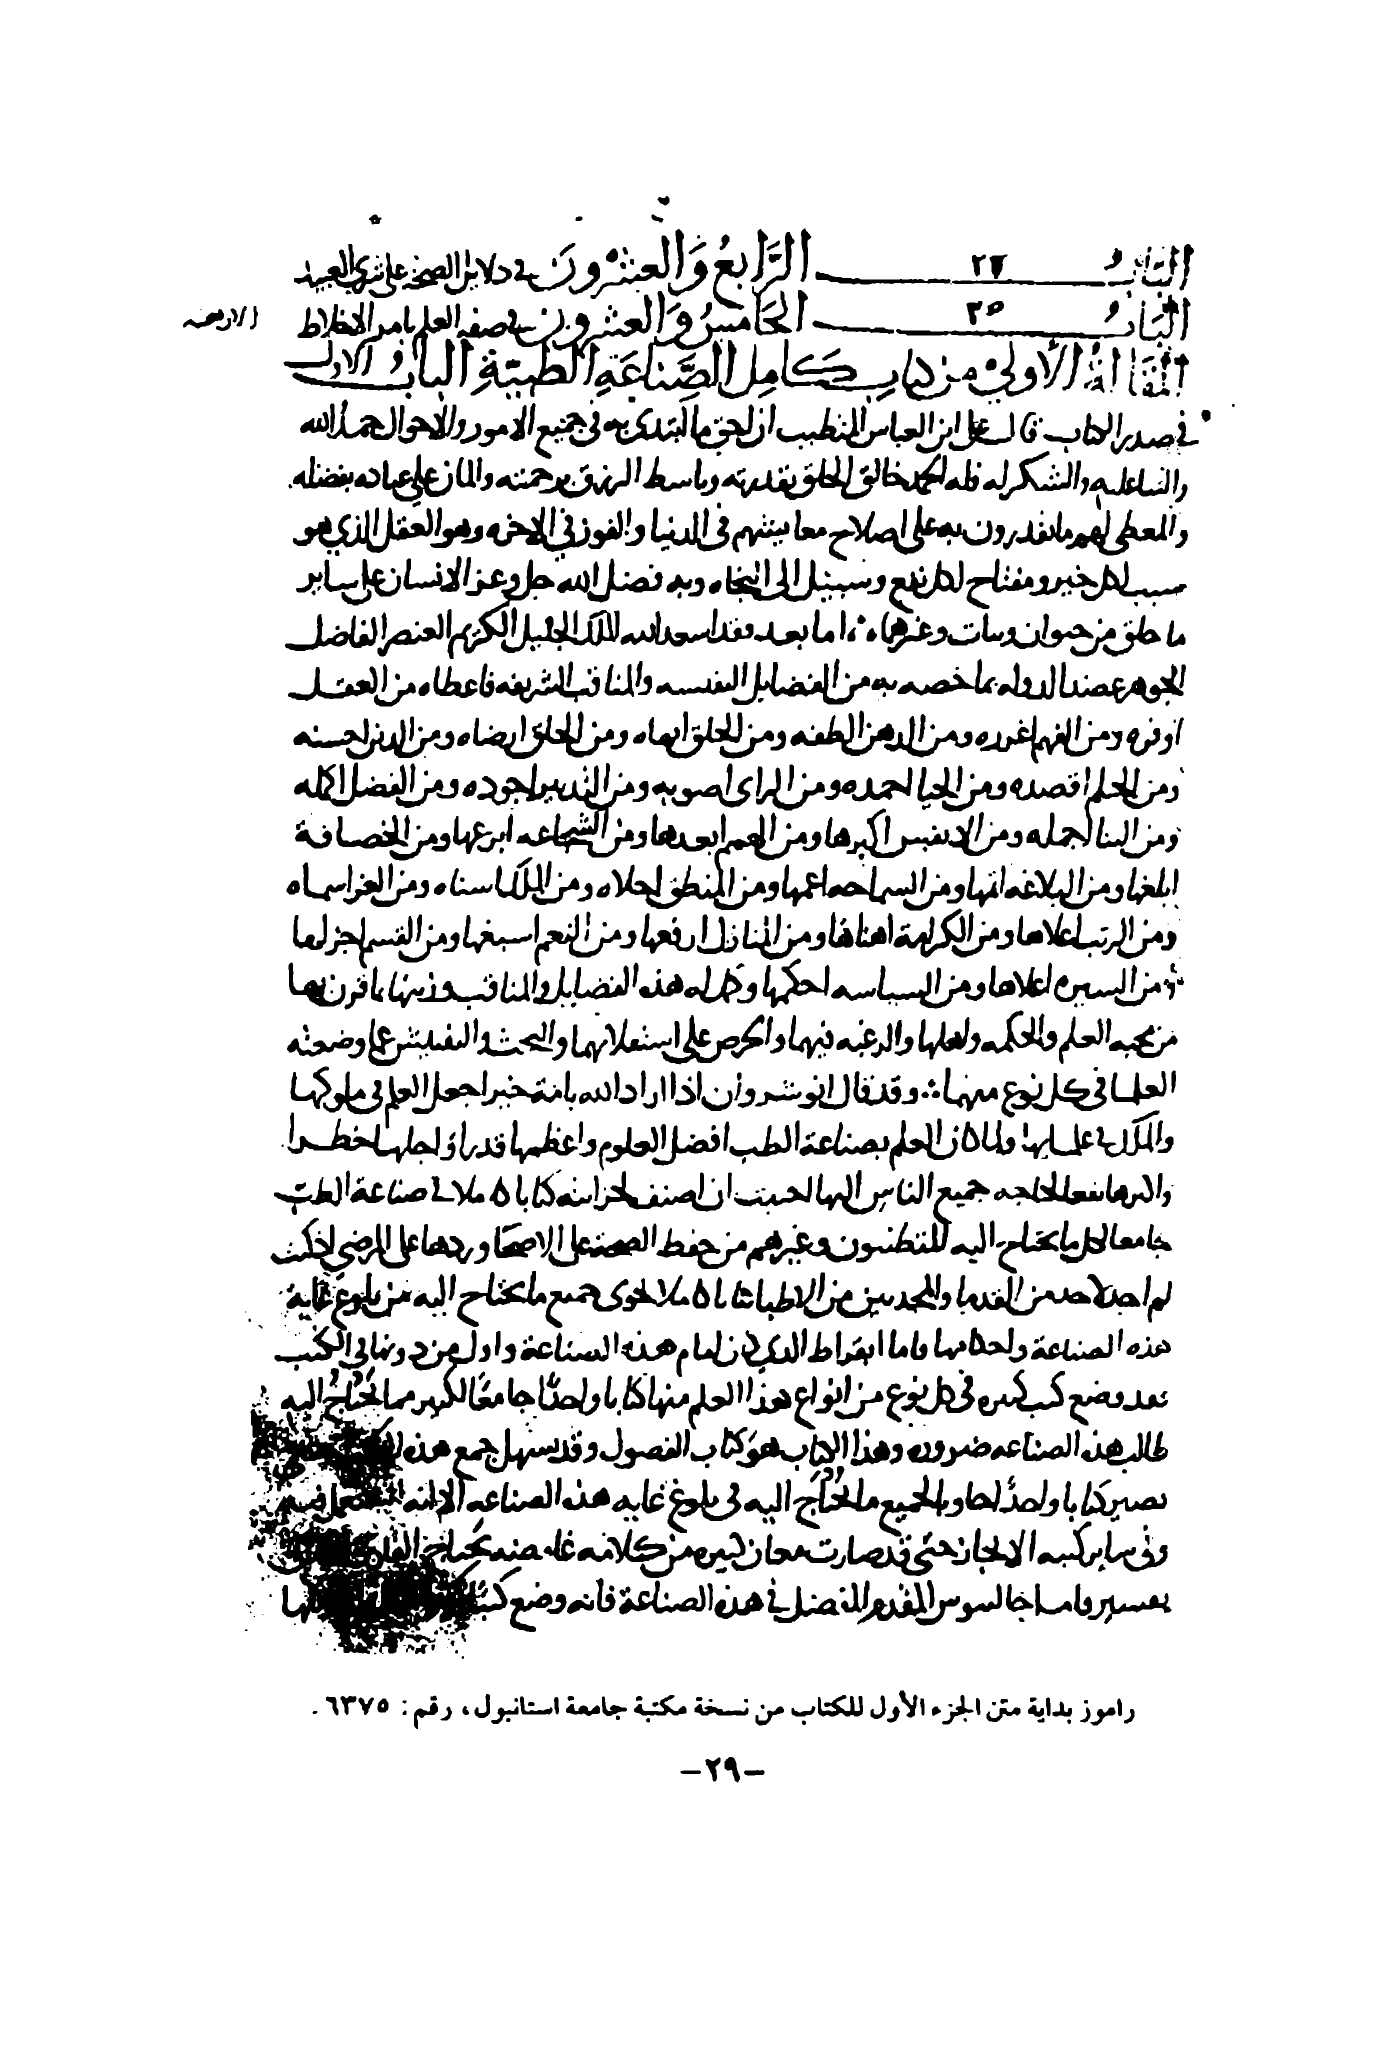 الباب ٢٤ الرَّابعُ وَالعشرُونَ في دلايل الصحة على شرى العبيد
الباب ٢٥ الخَامسُ وَالعشرون في صفه العلم بامر الاخلاط الاربعه
المقالة الأولى من كتاب كامل الصِّناعَةِ الطبيّةِ الباب الاول
في صدر الكتاب قال علي ابن العباس المتطبب ان احق ما ابتدي به في جميع الامور والاحوال حمد الله
والثنا عليه والشكر له فله الحمد خالق الخلق بقدرته وباسط الرزق برحمته والمان على عباده بفضله
والمعطي لهم ما يقدرون به على اصلاح معايشهم في الدنيا والفوز في الاخره وهو العقل الذي هو
سبب لكل خير ومفتاح لكل نفع وسبيل الى النجاه وبه فضل الله جل وعز الانسان على ساير
ما خلق من حيوان ونبات وغيرهما اما بعد فقد اسعد الله الملك الجليل الكريم العنصر الفاضل
الجوهر عضد الدوله بما خصه به من الفضايل النفيسه والمناقب الشريفه فاعطاه من العقل
اوفره ومن الفهم اغزره ومن الذهن الطفه ومن الخلق ابهاه ومن الخلق ارضاه ومن الدين احسنه
ومن الحلم اقصده ومن الحيا احمده ومن الراى اصوبه ومن التدبير اجوده ومن الفضل اكمله
ومن الثنا اجمله ومن الانفس اكبرها ومن الهمم ابعدها ومن الشجاعه ابرعها ومن الحصافة
ابلغها ومن البلاغه اتمها ومن السماحه اعمها ومن المنطق احلاه ومن الملك اسناه ومن العز اسماه
ومن الرتب اعلاها ومن الكرامة اهناها ومن المنازل ارفعها ومن النعم اسبغها ومن القسم اجزلها
ومن السيره اعلاها ومن السياسه احكمها وكمل له هذه الفضايل والمناقب وزينها بما قرن بها
من محبه العلم والحكمه واهلها والرغبه فيهما والحرص على استعلائهما والبحث والتفتيش عما وضعته
العلما في كل نوع منهما وقد قال انوشروان اذا اراد الله بامة خيرا جعل العلم في ملوكها
والملك في علمايها ولما كان العلم بصناعة الطب افضل العلوم واعظمها قدرا واجلها خطرا
واكثرها نفعا لحاجه جميع الناس اليها احببت ان اصنف لخزانته كتابا كاملا في صناعة الطب
جامعا لكل ما يحتاج اليه المتطببون وغيرهم من حفظ الصحة على الاصحا وردها على المرضى اذ كنت
لم اجد لاحد من القدما والمحدثين من الاطبا كتابا كاملا يحوى جميع ما يحتاج اليه من بلوغ غاية
هذه الصناعة واحكامها فاما ابقراط الذي كان امام هذه الصناعة واول من دونها في الكتب
فقد وضع كتب كثيره في كل نوع من انواع هذا العلم منها كتابا واحدًا جامعًا لكثير مما يحتاج اليه
طالب هذه الصناعه ضروره وهذا الكتاب هو كتاب الفصول وقد يسهل جمع هذه
يصير كتابا واحدًا حاويا لجميع ما يحتاج اليه في بلوغ غايه هذه الصناعه الا انه استعمل فيه
وفي ساير كتبه الايجاز حتى قد صارت معان كثيره من كلامه غامضه يحتاج القارى
تفسير واما جالينوس المقدم المفضل في هذه الصناعة فانه وضع كتبًا
راموز بداية متن الجزء الأول للكتاب من نسخة مكتبة جامعة استانبول، رقم: ٦٣٧٥.
-٢٩-